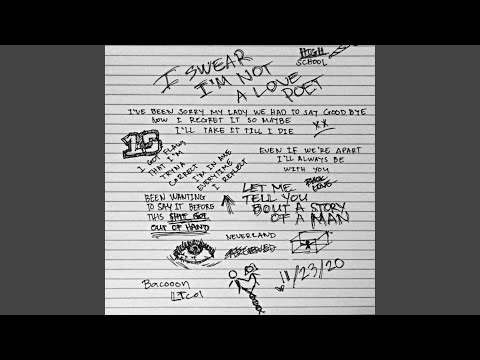 HIGH
SCHOOL
I SWEAR
I'M NOT
A LOVE
POET
I'VE BEEN SORRY MY LADY WE HAD TO SAY GOOD BYE
NOW I REGRET IT SO MAYBE
I'LL TAKE IT TILL I DIE
XX
15
I GOT FLAWS
THAT I'M
TRYNA
CORRECT
I'M IN AWE
EVERYTIME
I REFLECT
EVEN IF WE'RE APART
I'LL ALWAYS BE
WITH YOU
LOVE
BEEN WANTING
TO SAY IT BEFORE
THIS SHIT GOT
OUT OF HAND
LET ME
TELL YOU
BOUT A STORY
OF A MAN
NEVERLAND
11/23/20
Bacooon